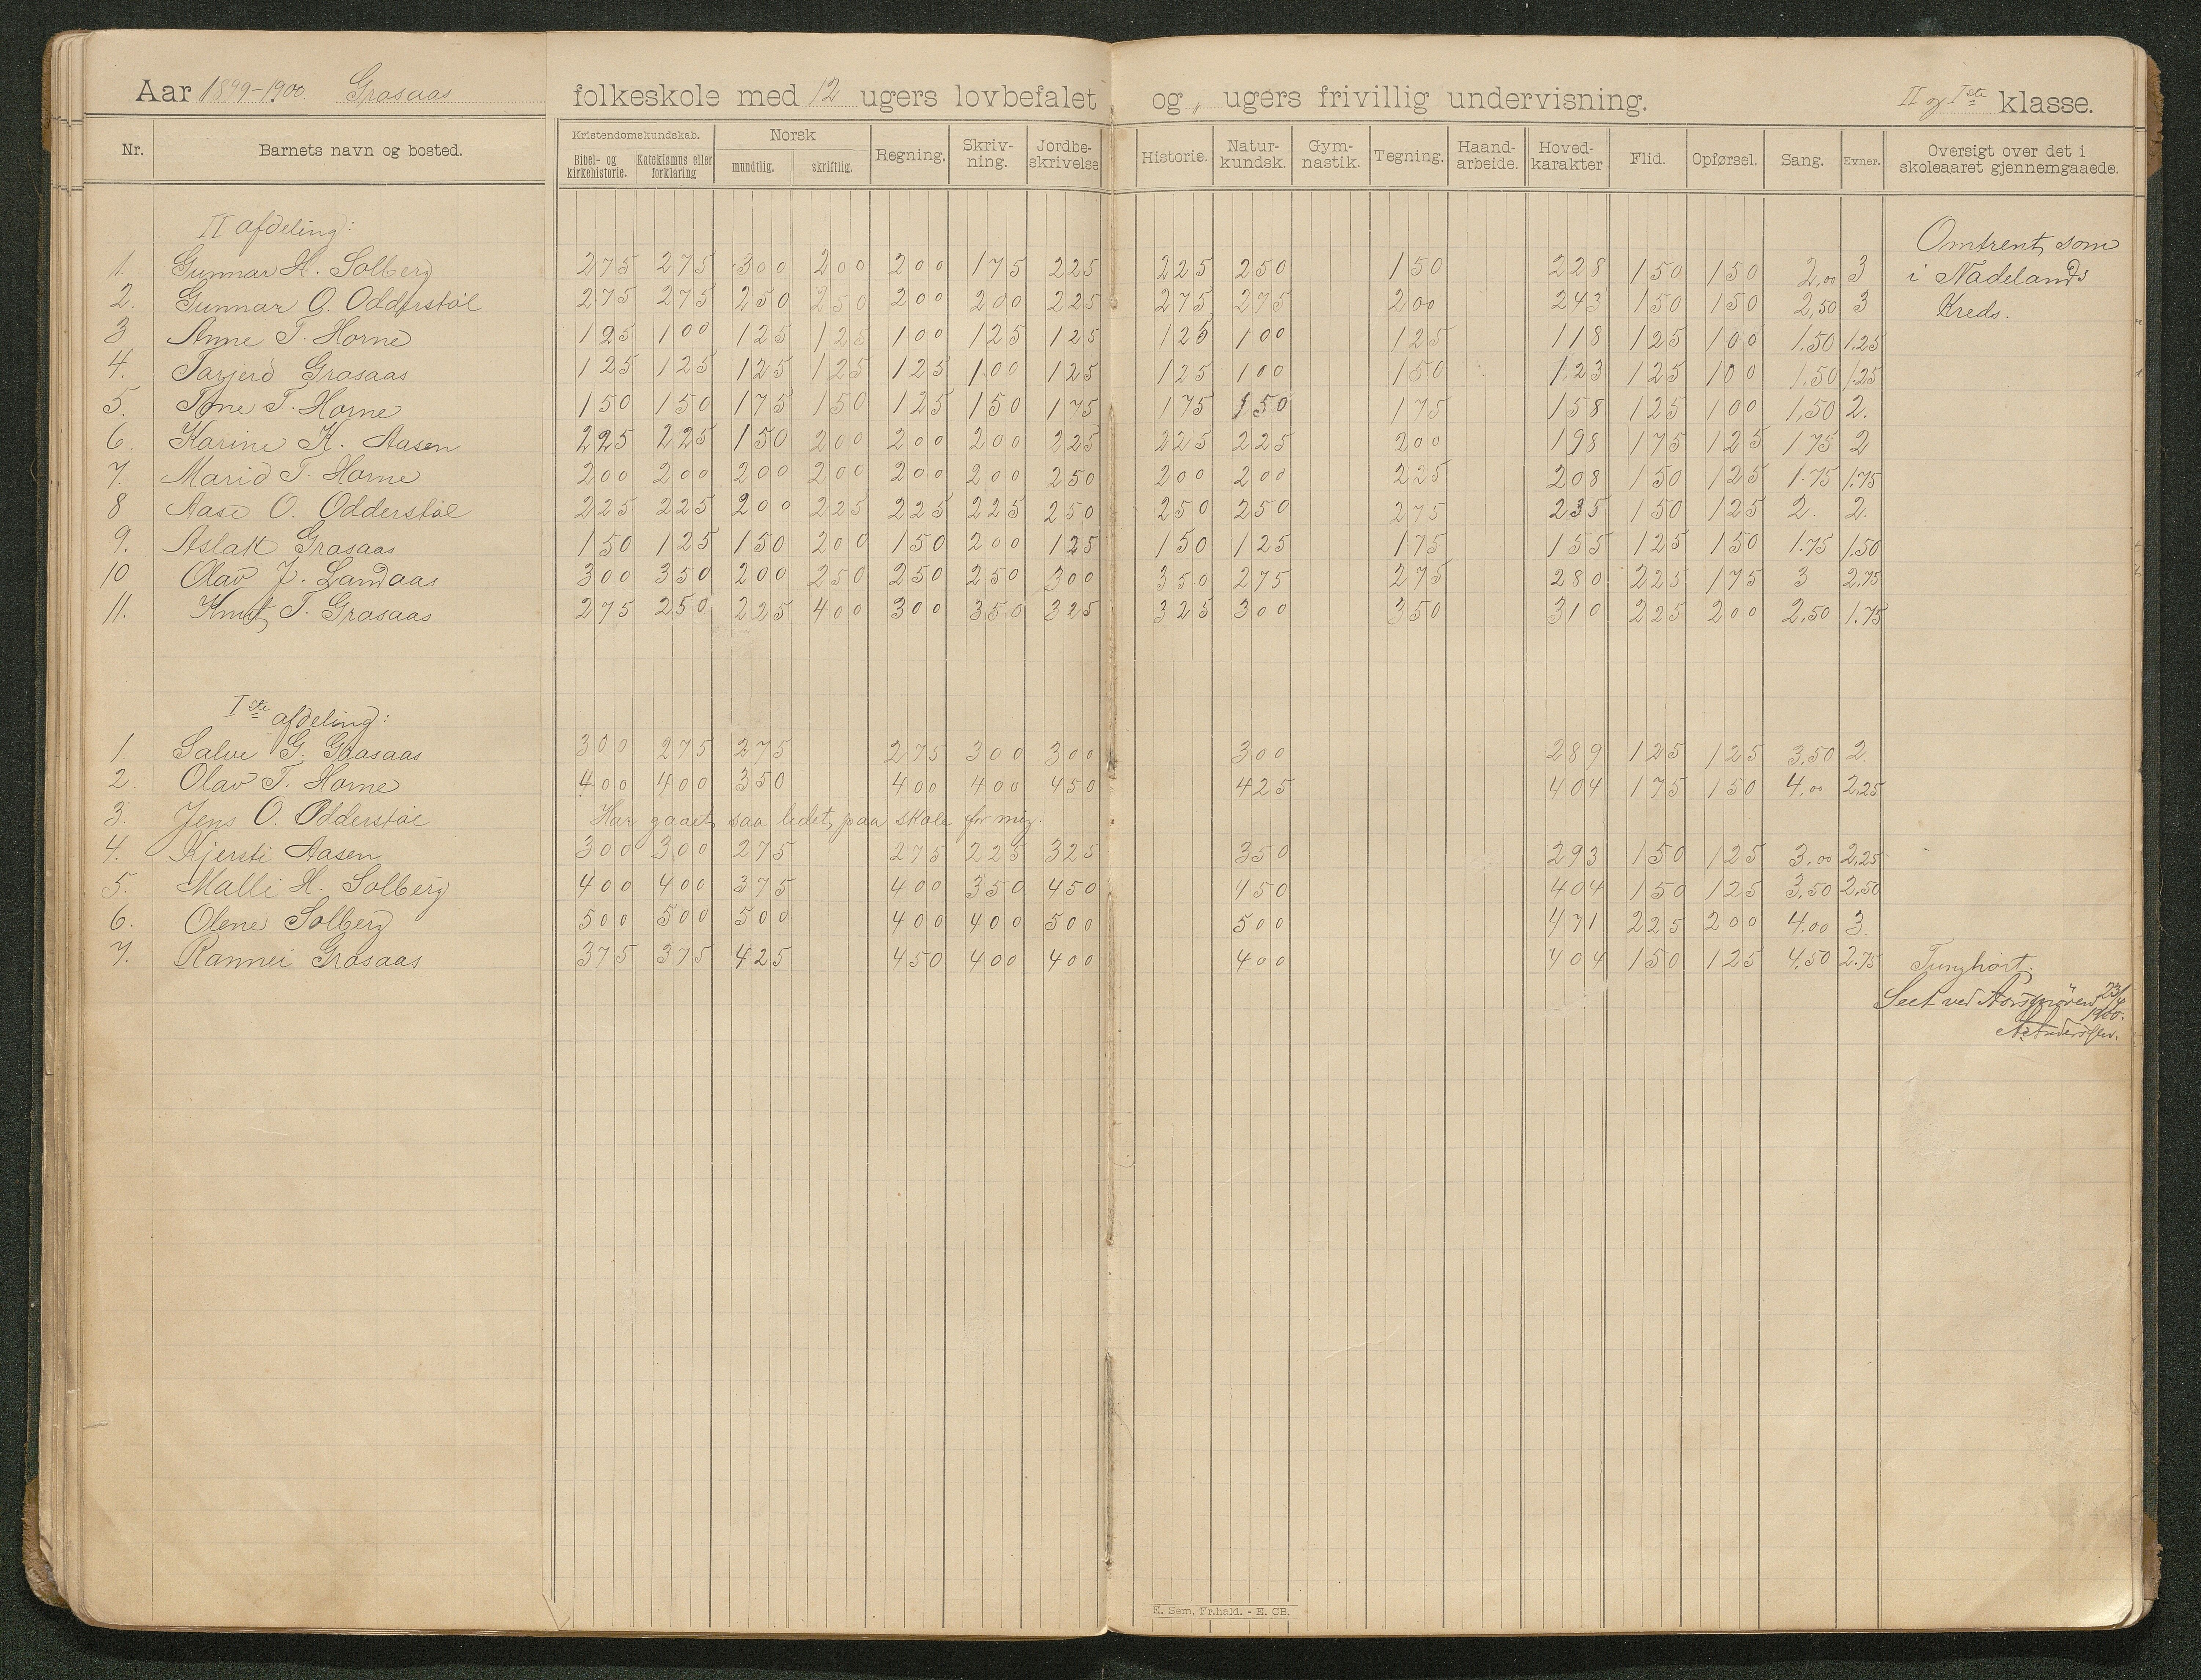 Aar 1899-1900 Grasaas folkeskole med 12 ugers lovbefalet og „ ugers frivillig undervisning. II og Iste klasse.
Nr. Barnets navn og bosted. Kristendomskundskab. Bibel- og kirkehistorie. Katekismus eller forklaring Norsk mundtlig. skriftlig. Regning. Skriv-ning. Jordbe-skrivelse Historie. Natur-kundsk. Gym-nastik. Tegning. Haand-arbeide. Hoved-karakter Flid. Opførsel. Sang. Evner. Oversigt over det i skoleaaret gjennemgaaede.
II afdeling:
1. Gunnar H. Solberg 275 275 300 200 200 175 225 225 250 150 228 150 150 2,00 3 Omtrent som
i Nadelands
2. Gunnar O. Odderstøl 275 275 250 250 200 200 225 275 275 200 243 150 150 2,50 3 Kreds.
3 Anne T. Horne 125 100 125 125 100 125 125 125 100 125 118 125 100 1.50 1.25
4. Tarjerd Grasaas 125 125 125 125 125 100 125 125 100 150 123 125 100 1.50 1.25
5. Tone T. Horne 150 150 175 150 125 150 175 175 150 175 158 125 100 1,50 2.
6. Karine K. Aasen 225 225 150 200 200 200 225 225 225 200 198 175 125 1.75 2
7. Marid T. Horne 200 200 200 200 200 200 250 200 200 225 208 150 125 1.75 1.75
8 Aase O. Odderstøl 225 225 200 225 225 225 250 250 250 275 235 150 125 2. 2.
9. Aslak Grasaas 150 125 150 200 150 200 125 150 125 175 155 125 150 1.75 1.50
10 Olav J. Landaas 300 350 200 250 250 250 300 350 275 275 280 225 175 3 2.75
11. Knut T. Grasaas 275 250 225 400 300 350 325 325 300 350 310 225 200 2,50 1.75
Iste afdeling:
1. Salve G. Grasaas 300 275 275 275 300 300 300 289 125 125 3,50 2.
2. Olav T. Horne 400 400 350 400 400 450 425 404 175 150 4,00 2,25
3. Jens O. Odderstøl Har gaaet saa lidet paa skole for mig.
4. Kjersti Aasen 300 300 275 275 225 325 350 293 150 125 3,00 2,25
5. Malli H. Solberg 400 400 375 400 350 450 450 404 150 125 3,50 2,50
6. Olene Solberg 500 500 500 400 400 500 500 471 225 200 4,00 3.
7. Rannei Grasaas 375 375 425 450 400 400 400 404 150 125 4,50 2.75 Tunghørt.
Seet ved Aarsprøven 23/4
1900.
E. Sem, Fr.hald. - E. CB.